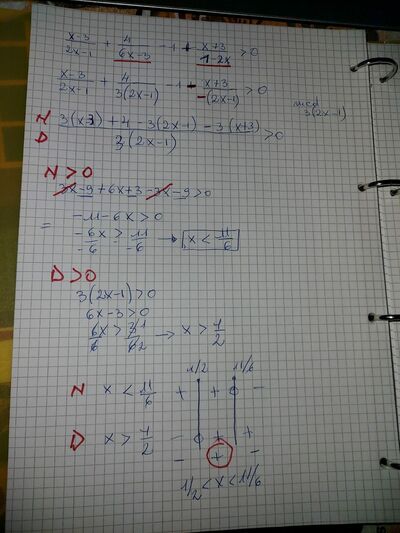 x-3/2x-1 + 4/6x-3 -1 + x+3/1-2x >0
x-3/2x-1 + 4/3(2x-1) -1 - x+3/(2x-1) >0
mcd
3(2x-1)
N 3(x-3)+4-3(2x-1)-3(x+3) >0
D 3(2x-1)
N>0
3x-9+6x+3-3x-9>0
= -11-6x>0
-6x/-6 > 11/-6 → x < 11/6
D>0
3(2x-1)>0
6x-3>0
6x/6 > 31/62 → x > 1/2
1/2 11/6
N x < 11/6 + + -
D x > 1/2 - + +
- + -
1/2 < x < 11/6